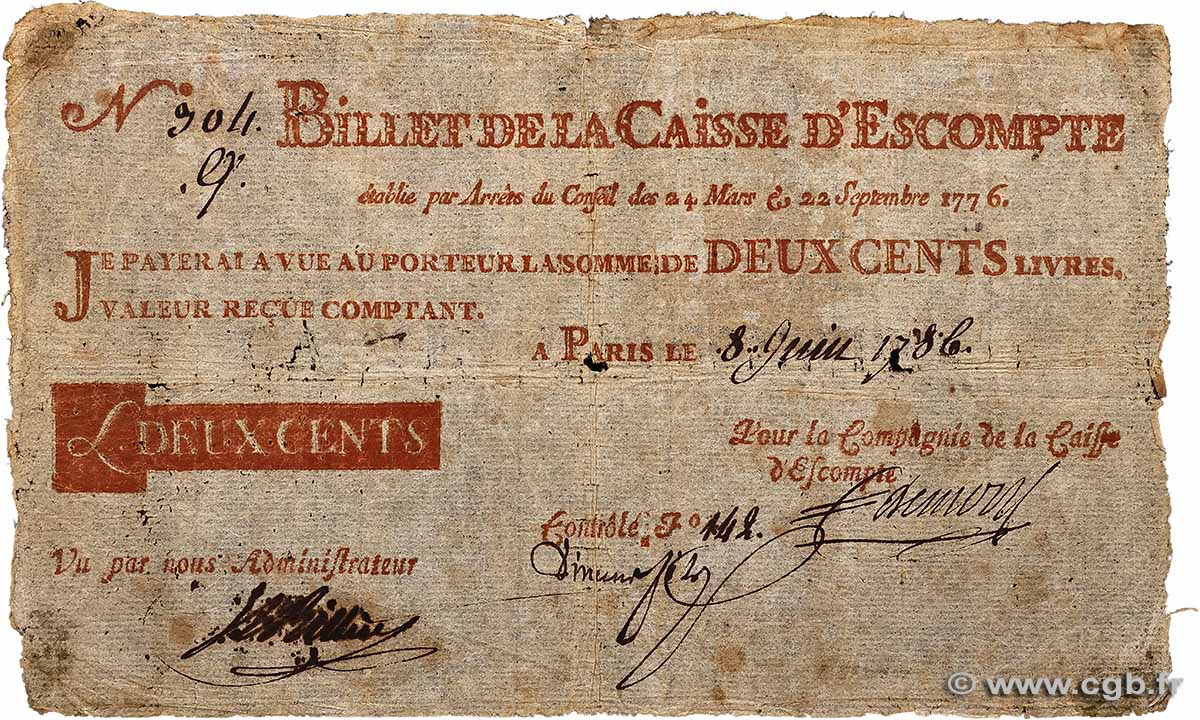 N° 304. BILLET DE LA CAISSE D'ESCOMPTE
.9.
établie par Arrêts du Conseil des 24 Mars & 22 Septembre 1776.
JE PAYERAI A VUE AU PORTEUR LA SOMME DE DEUX CENTS LIVRES.
VALEUR REÇUE COMPTANT.
A PARIS LE 8. Juin 1786.
L. DEUX CENTS
Pour la Compagnie de la Caiſſe
d'Eſcompte
Contrôlé F° 142.
Vu par nous Adminiſtrateur
© www.cgb.fr